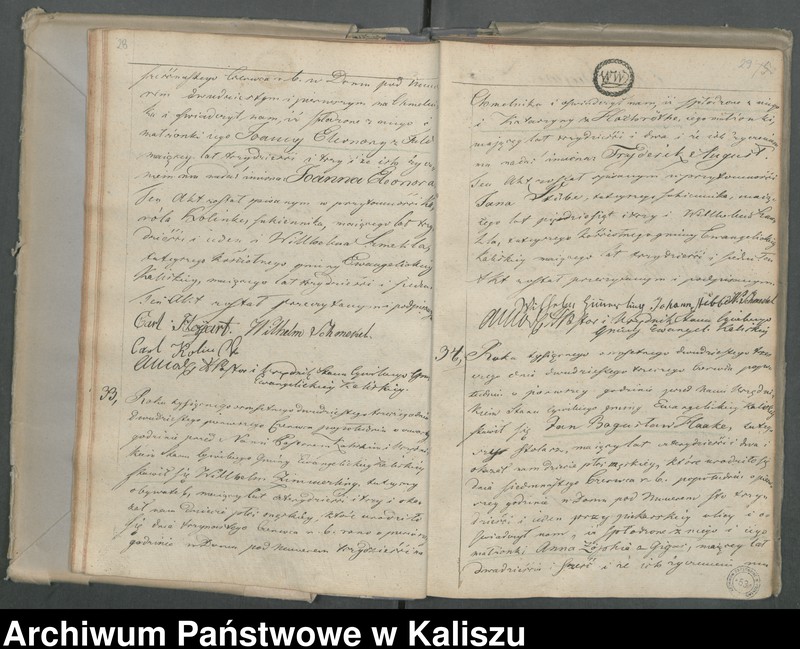 28
Czerwca r. b. w Domu pod Nume
rem dwudziestym i pierwszym na Chmiel
ni i oświadczył nam, iż spłodzone z niego i
małżonki jego Joanny Eleonory z
mającej lat trzydzieści i trzy i że iest życze
niem nadać imiona Joanna Eleonora
Ten Akt został spisanym w przytomności Ka
rola Kolinke, sukiennika, mającego lat trzy
dzieści i ieden i Willhelma Szmekla,
tutejszego kościelnego gminy Ewangelickiej
Kaliskiej, mającego lat trzydzieści i siedm
Ten Akt został przeczytanym i podpisanym
Carl Wilhelm Schmeckel.
Carl
Pastor i Urzędnik Stanu Cywilnego Gminy
Ewangelickiej Kaliskiej.
33,
Roku tysiącznego osmsetnego dwudziestego trzeciego dnia
dwudziestego pierwszego Czerwca popołudniu o
godzinie przed Nami Pastorem Kaliskim i Urzędni
kiem Stanu Cywilnego Gminy Ewangelickiej Kaliskiej
stawił się Willhelm Zimmerling, tutejszy
obywatel, mający lat czterdzieści i trzy i oka
zał nam dziecie płci męskiej, które urodziło
się dnia Czerwca r. b. rano o
godzinie w Domu pod Numerem trzydzieści na
29
WW
Chmielniku i oświadczył nam, iż spłodzone z niego
i Katarzyny z jego małżonki,
mającej lat trzydzieści i dwa i że iest życzeniem
nadać imiona Fryderik August.
Ten Akt został spisanym w przytomności
Jana Stübe, tutejszego sukiennika, mają
cego lat pięćdziesiąt i trzy i Willhelma Szme
kla, tutejszego kościelnego gminy Ewangelickiej
Kaliskiej mającego lat trzydzieści i siedm Ten
Akt został przeczytanym i podpisanym.
Johann
Pastor i Urzędnik Stanu Cywilnego
Gminy Ewangel. Kaliskiej
34,
Roku tysiącznego osmsetnego dwudziestego trze
ciego dnia dwudziestego trzeciego Czerwca popo
łudniu o pierwszej godzinie przed Nami Urzędni
kiem Stanu Cywilnego gminy Ewangelickiej Kaliskiej
stawił się Jan Bogusław Haake, tutey
szy Stolarz, mający lat czterdzieści i dwa i
okazał nam dziecie płci męskiej, które urodziło się
dnia siedmnastego Czerwca r. b. popołudniu o pier
wszej godzinie w Domu pod Numerem Sto trzy
dzieści i ieden przy piekarskiej ulicy i o
świadczył nam, iż spłodzone z niego i iego
małżonki Anna Zofia z mającej lat
dwadzieścia i sześć i że iest życzeniem
Archiwum Państwowe w Kaliszu